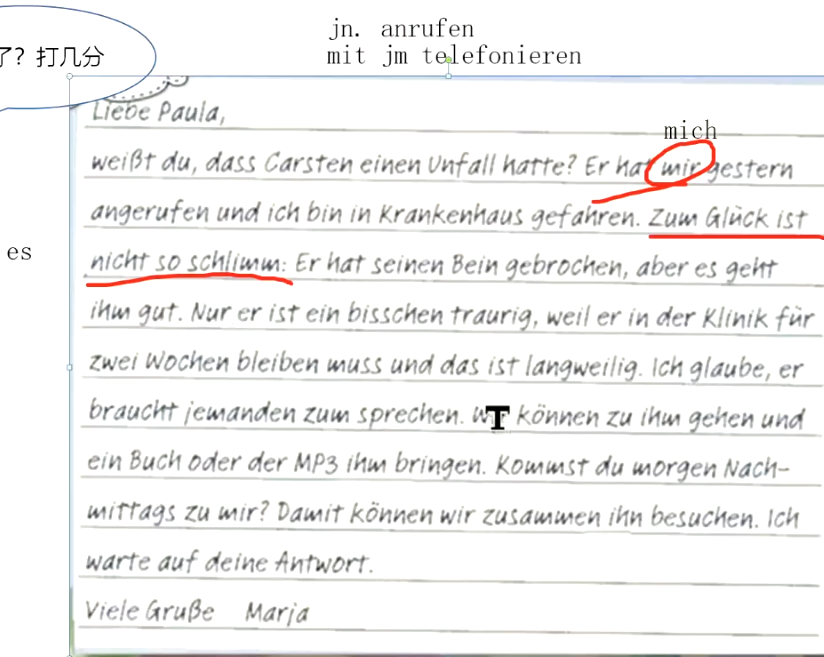 jn. anrufen
了? 打几分
mit jm telefonieren
Liebe Paula,
mich
weißt du, dass Carsten einen Unfall hatte? Er hat mir gestern
angerufen und ich bin in Krankenhaus gefahren. Zum Glück ist
es
nicht so schlimm: Er hat seinen Bein gebrochen, aber es geht
ihm gut. Nur er ist ein bisschen traurig, weil er in der Klinik für
zwei Wochen bleiben muss und das ist langweilig. Ich glaube, er
braucht jemanden zum sprechen. können zu ihm gehen und
ein Buch oder der MP3 ihm bringen. Kommst du morgen Nach-
mittags zu mir? Damit können wir zusammen ihn besuchen. Ich
warte auf deine Antwort.
Viele Gruße Marja